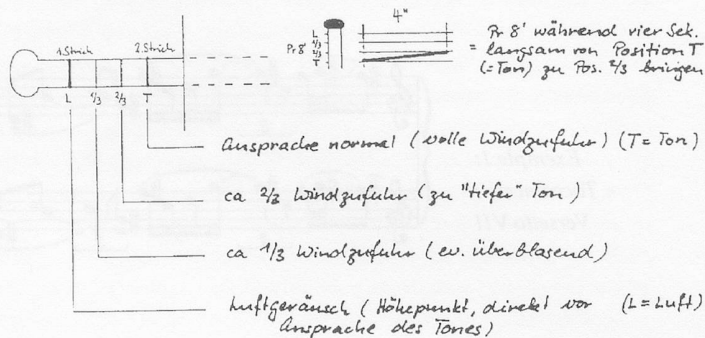 1. Strich 2. Strich
L 1/3 2/3 T
4"
Pr 8'
L
1/3
2/3
T
Pr 8' während vier Sek.
= langsam von Position T
(=Ton) zu Pos. 2/3 bringen
Ansprache normal (volle Windzufuhr) (T = Ton)
ca 2/3 Windzufuhr (zu "tiefer" Ton)
ca 1/3 Windzufuhr (ev. überblasend)
Luftgeräusch (Höhepunkt, direkt vor (L = Luft)
Ansprache des Tones)